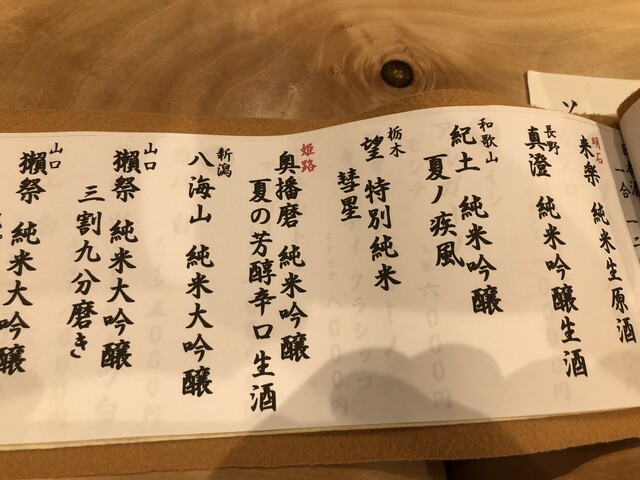 明石
来楽 純米生原酒
長野
真澄 純米吟醸生酒
和歌山
紀土 純米吟醸
夏ノ疾風
栃木
望 特別純米
彗星
姫路
奥播磨 純米吟醸
夏の芳醇辛口生酒
新潟
八海山 純米大吟醸
山口
獺祭 純米大吟醸
三割九分磨き
山口
獺祭 純米大吟醸